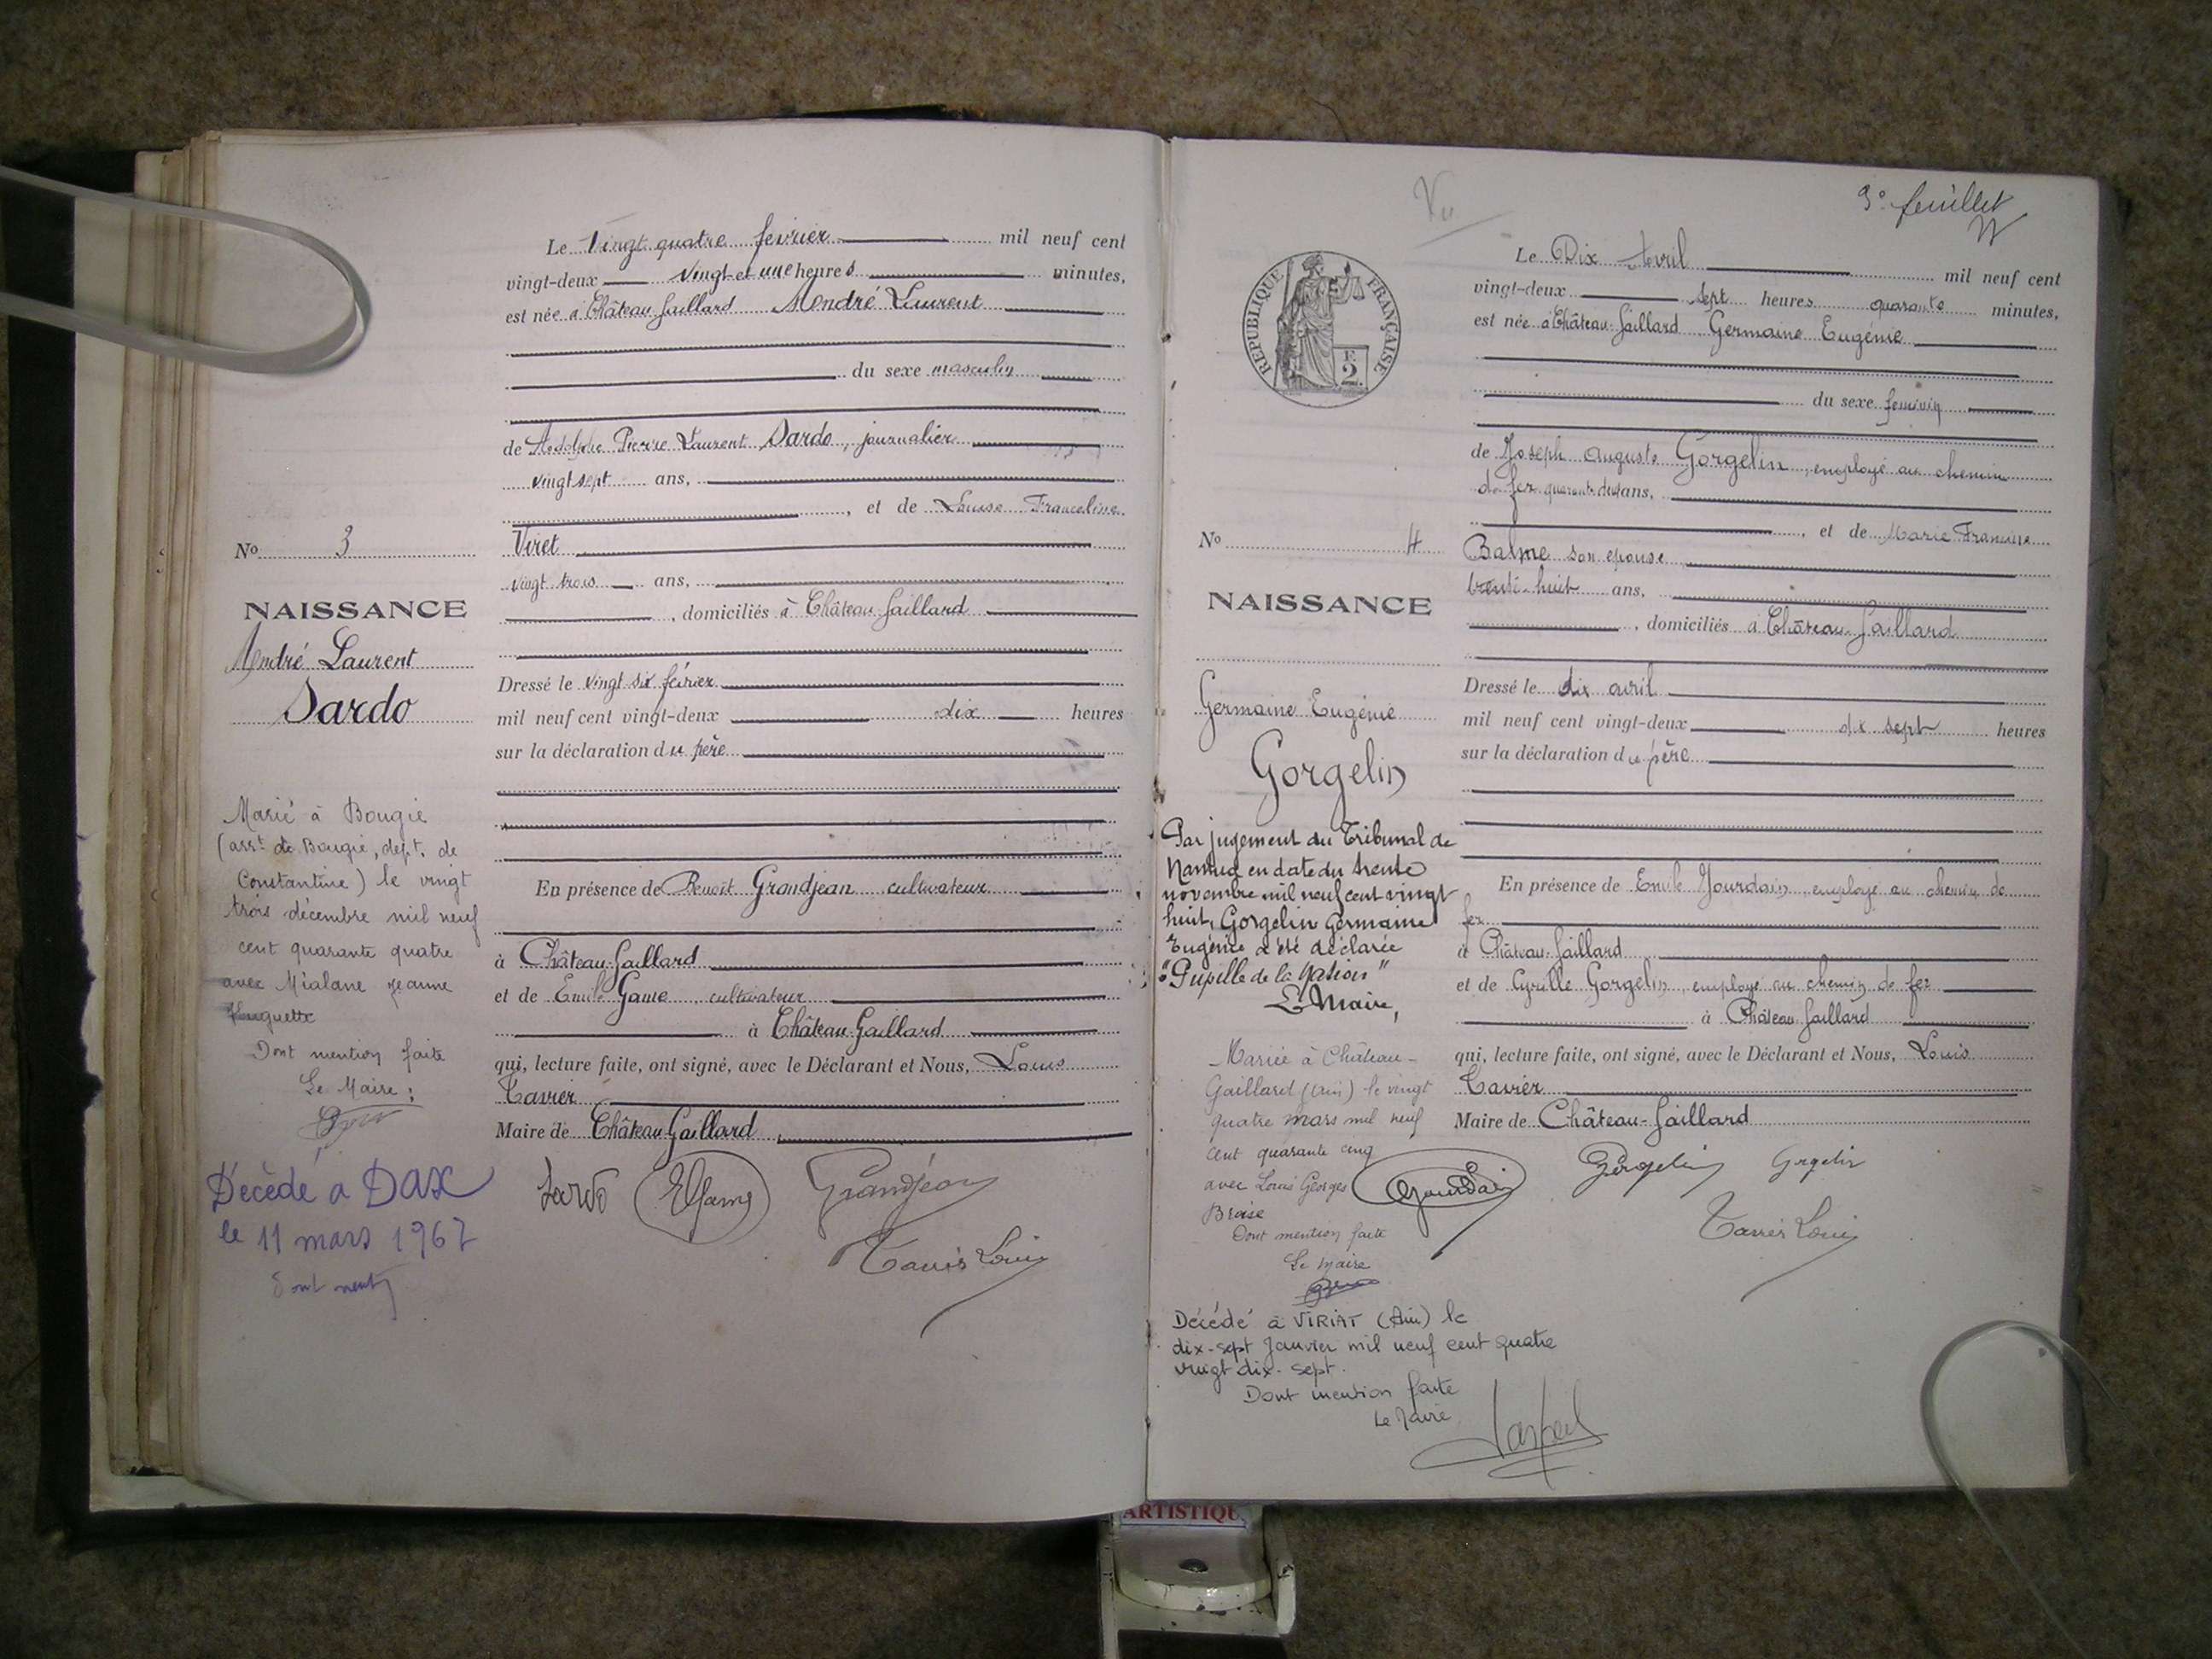 Le Vingt quatre février mil neuf cent
vingt-deux vingt et une heures minutes,
est née à Château Gaillard André Laurent
du sexe masculin
de Adolphe Pierre Laurent Sardo, journalier
vingt sept ans,
, et de Louise Franceline
Viret
vingt trois ans,
, domiciliés à Château Gaillard
Dressé le vingt six février
mil neuf cent vingt-deux dix heures
sur la déclaration du père
En présence de Benoît Grandjean cultivateur
à Château-Gaillard
et de Emile Game, cultivateur
à Château-Gaillard
qui, lecture faite, ont signé, avec le Déclarant et Nous, Louis
Tavier
Maire de Château Gaillard
Sardo EGame Grandjean
Tavier Louis
No 3
NAISSANCE
André Laurent
Sardo
Marié à Bougie
(arrt de Bougie, dept. de
Constantine) le vingt
trois décembre mil neuf
cent quarante quatre
avec Mialane Jeanne
Huguette
Dont mention faite
Le Maire :
Décédé a DAX
le 11 mars 1967
Dont ment
Vu
3e feuillet
REPUBLIQUE FRANÇAISE
2
Le Dix Avril mil neuf cent
vingt-deux sept heures quarante minutes,
est née à Château-Gaillard Germaine Eugénie
du sexe feminin
de Joseph Auguste Gorgelin, employé au chemin
de fer quarante deux ans,
, et de Marie Francine
Balme son epouse
trente-huit ans,
, domiciliés à Château-Gaillard
Dressé le dix avril
mil neuf cent vingt-deux dix sept heures
sur la déclaration du père
En présence de Emile Jourdain employé au chemin de
fer
à Château-Gaillard
et de Cyrille Gorgelin, employé au chemin de fer
à Château Gaillard
qui, lecture faite, ont signé, avec le Déclarant et Nous, Louis
Tavier
Maire de Château-Gaillard
EJourdain Gorgelin Gorgelin
Tavier Louis
No 4
NAISSANCE
Germaine Eugénie
Gorgelin
Par jugement du Tribunal de
Nantua en date du trente
novembre mil neuf cent vingt
huit, Gorgelin Germaine
Eugénie a été déclarée
"Pupille de la Nation"
Le Maire,
Mariée à Château-
Gaillard (Ain) le vingt
quatre mars mil neuf
cent quarante cinq
avec Louis Georges
Braise
Dont mention faite
Le Maire
Décédé à VIRIAT (Ain) le
dix-sept Janvier mil neuf cent quatre
vingt dix-sept.
Dont mention faite
Le Maire
ARTISTIQU